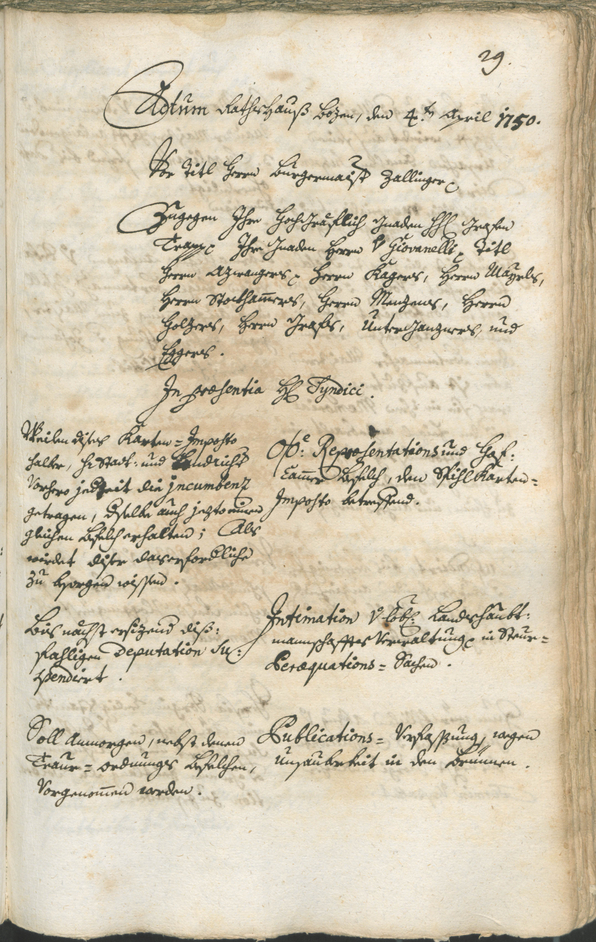 29.
Actum Rathshauß Bozen, den 4.ten April 1750.
Vor Titl Herrn Burgermaister Zallinger
Zugegen Ihro Hochgräflich Gnaden H: Grafen
Trapp Ihro Gnaden Herrn v Giovanelli, Titl
Herrn Azwangers, Herrn Kagers, Herrn Mayrls,
Herrn Stockhamers, Herrn Menzens, Herrn
Holzers, Herrn Grafs, Untergangners, und
Eggers.
In præsentia H: Syndici.
Weilen dises Karten-Imposto
halber, hi: Stadt- und Landricht
vorhero jederzeit die incumbenz
getragen, dselbe auch jezto einen
gleichen Befelch erhalten; Als
wirdet diser das erforderliche
zu besorgen wissen.
Ofö: Repræsentations und Hof-
Camer Befelch, den Spihl Karten-
Imposto betreffend.
Bis nächst ersizend diß-
fahligen Deputation Su-
spendiert.
Intimation v Löbl: Landshaubt-
mannschaffts Verwaltung in Steur-
Peræquations-Sachen.
Soll Anmorgen, nebst denen
Traur-ordnungs Befelchen,
Vorgenomen werden.
Publications-Verfassung, wegen
Unsauberkeit in den Brünnen.